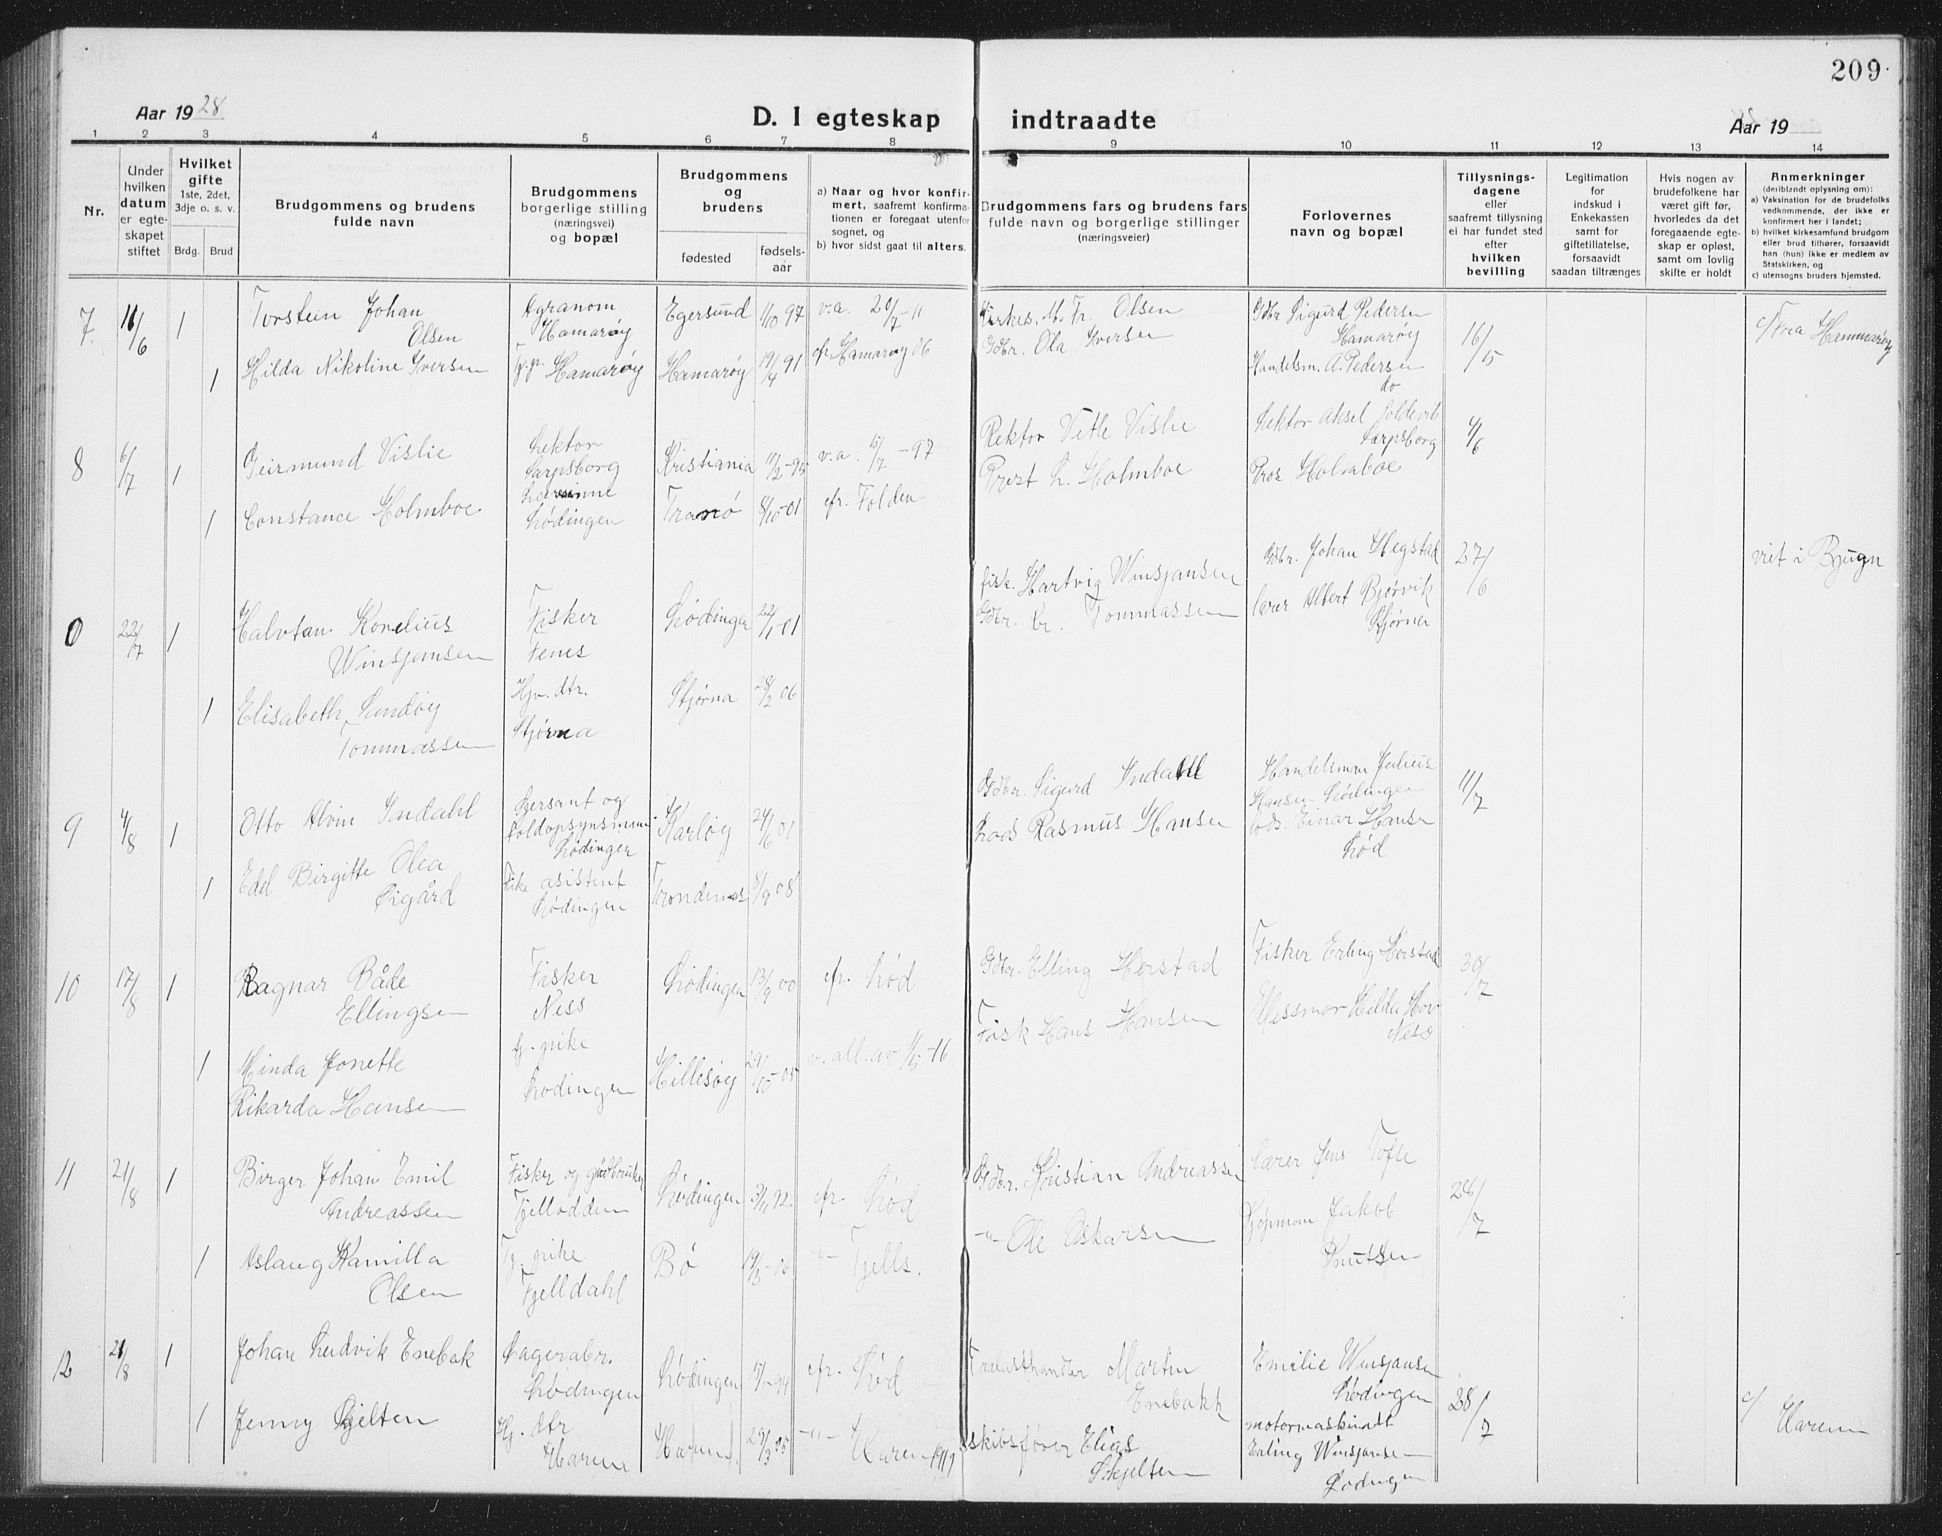 209.
Aar 1928
D. I egteskap indtraadte
Aar 19
1 2 3 4 5 6 7 8 9 10 11 12 13 14
Nr.
Under hvilken datum er egteskapet stiftet
Hvilket gifte 1ste, 2det, 3dje o. s. v.
Brdg. Brud
Brudgommens og brudens fulde navn
Brudgommens borgerlige stilling (næringsvei) og bopæl
Brudgommens og brudens
fødested
fødselsaar
a) Naar og hvor konfirmert, saafremt konfirmationen er foregaat utenfor sognet, og
b) hvor sidst gaat til alters.
Brudgommens fars og brudens fars fulde navn og borgerlige stillinger (næringsveier)
Forlovernes navn og bopæl
Tillysningsdagene eller saafremt tillysning ei har fundet sted efter hvilken bevilling
Legitimation for indskud i Enkekassen samt for giftetillatelse, forsaavidt saadan tiltrænges
Hvis nogen av brudefolkene har været gift før, hvorledes da det foregaaende egteskap er opløst, samt om lovlig skifte er holdt
Anmerkninger (deriblandt oplysning om):
a) Vaksination for de brudefolks vedkommende, der ikke er konfirmert her i landet;
b) hvilket kirkesamfund brudgom eller brud tilhører, forsaavidt han (hun) ikke er medlem av Statskirken, og
c) utensogns bruders hjemsted.
7. 11/6 1 Torstein Johan Olsen Agronom Hamarøy Egersund 1/10 97 v.a. 20/7-11 Kirkes. M. Fr. Olsen Gdbr Sigurd Pedersen Hamarøy 16/15 c/ Fra Hammarøy
1 Hilda Nikoline Iversen Hamarøy Hamarøy 19/4 91 cfr Hamarøy 06 Gdbr. Ola Iversen Handelsm. A. Pedersen do
8 6/7 1 Geirmund Vislie Lektor Sarpsborg Kristiania 11/2-95 v.a. 15/7-97 Rektor Vetle Vislie Lektor Aksel Sarpsborg 4/6
1 Constance Holmboe Lærerinne Lødingen Tranø 8/10-01 cfr. Folden Prost L. Holmboe Pros Holmboe
0 22/7 1 Halvtan Kornelius Winsjansen Fisker Fenes Lødingen 22/1-01 fisk. Hartvig Winsjansen Gdbr. Johan Hegstad 27/6 viet i Bjugn
1 Elisabeth Sandøy Tommassen Hjv. dtr. Stjørna Stjørna 28/2 06 Gdbr. Tommassen lærer Albert Bjørvik Stjørna
9 4/8 1 Otto Alvin Indahl Sersant og Lødingen Karløy 24/6 01 Gdbr. Sigurd Indahl Handelsman Julius Hansen Lødingen 11/7
1 Edel Birgitte Olea Øigård asistent Lødingen Trondenes 8/9 08 Lods Rasmus Hansen Lods. Einar Hansen Lød
10 17/8 1 Ragnar Båle Ellingsen Fisker Ness Lødingen 13/9 00 cfr. Lød Gdbr. Elling Herstad Fisker Erling Herstad 30/7
1 Minda Jonette Rikarda Hansen tj. pike Lødingen Hillesøy 29/10-05 Fisk Hans Hansen Hilda Hov Ness
11 21/8 1 Birger Johan Emil Andreassen Fisker og gårdbruker Fjellodden Lødingen cfr. Lød Gdbr. Kristian Andreassen Lærer Jens Tofte 24/7
1 Aslaug Kamilla Olsen Tj. pike Fjelldahl Bø -"- Fjells. -"- Ole Oskarsen Kjøpman Jakob Knutsen
12 21/8 1 Johan Ludvik Enebak Lødingen Lødingen cfr. Lød Martin Enebakk Emilie Winsjansen Lødingen 28/7
1 Jenny Skjelten Hj. dtr Haram Haram -"- Haram 1919 skibsfører Elias Skjelten Erling Winsjansen Lødingen c/ Haram